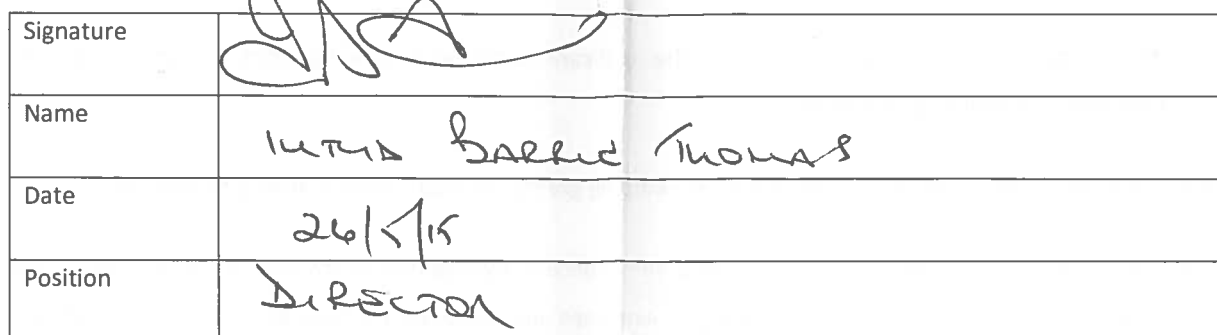 Signature
Name BARRIE THOMAS
Date 26/5/15
Position DIRECTOR